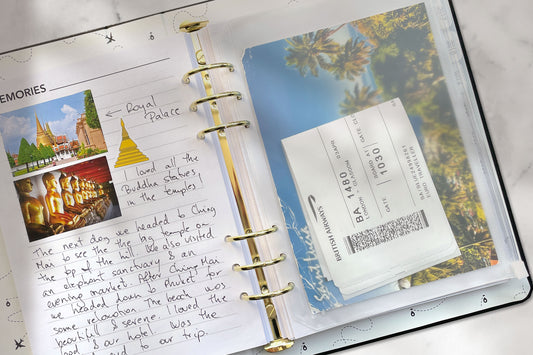 EMORIES
← Royal
Palace
I loved all the
Buddha statues
in the temples!
The next day we headed to Chiang
Mai to see the the big temple on
the top of the hill. We also visited
an elephant sanctuary & an
evening market. After Chiang Mai
we headed down to Phuket for
some relaxation. The beach was
beautiful & serene. I loved the
food & our hotel. Was the
end to our trip.
BRITISH AIRWAYS
BA 1480
LONDON GLASGOW
BOARD AT
1030
GATE
EURO TRAVELLER
Saint Lucia